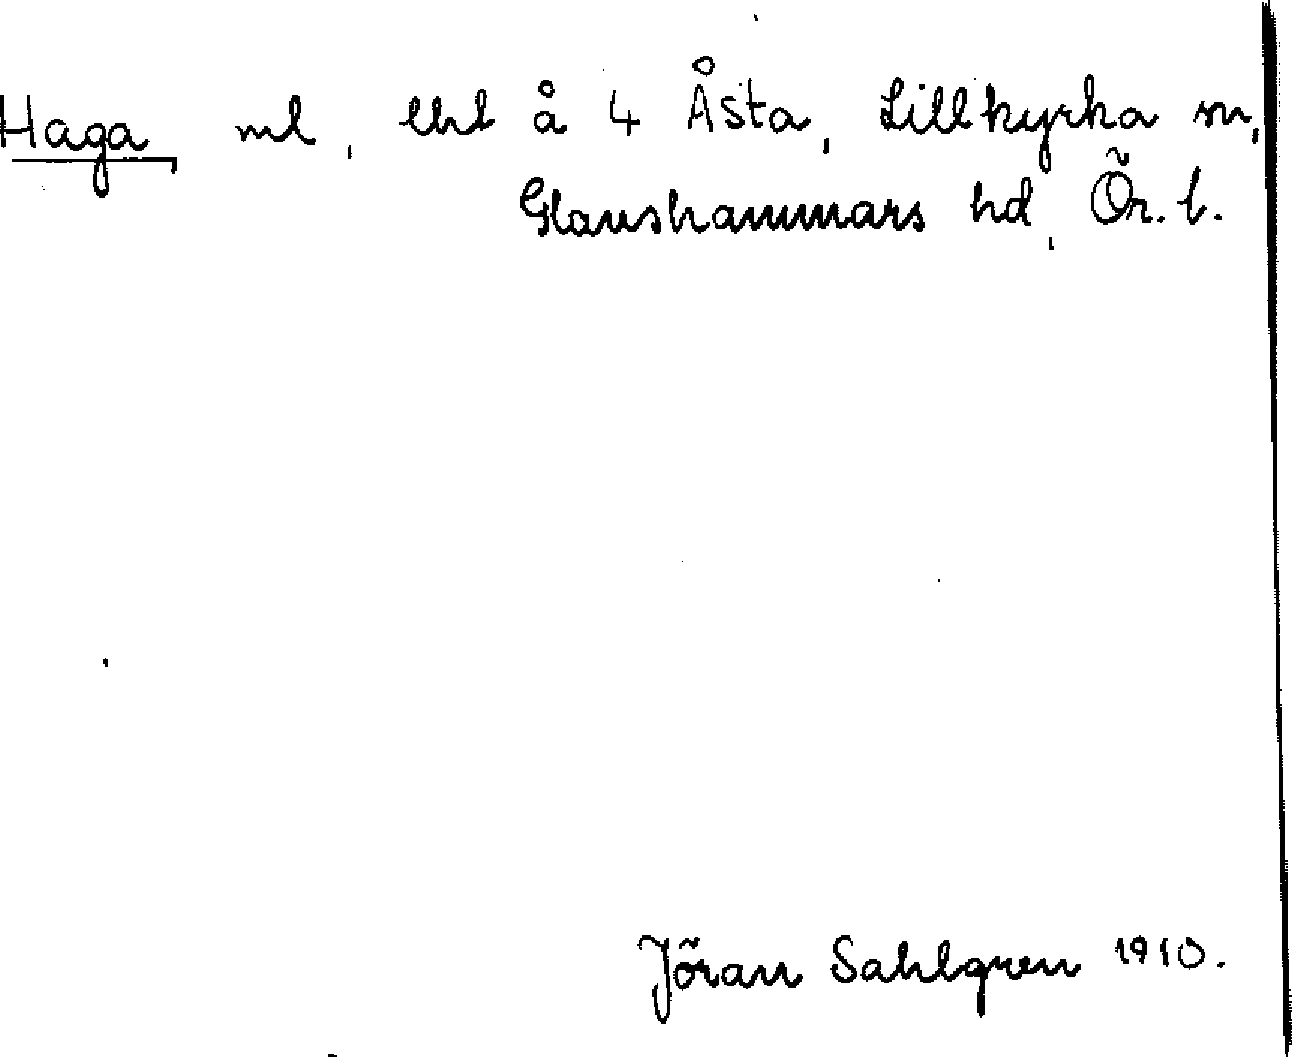 Haga, ml, lht å 4 Åsta, Lillkyrka sn,
Glanshammars hd, Ör. l.
Jöran Sahlgren 1910.